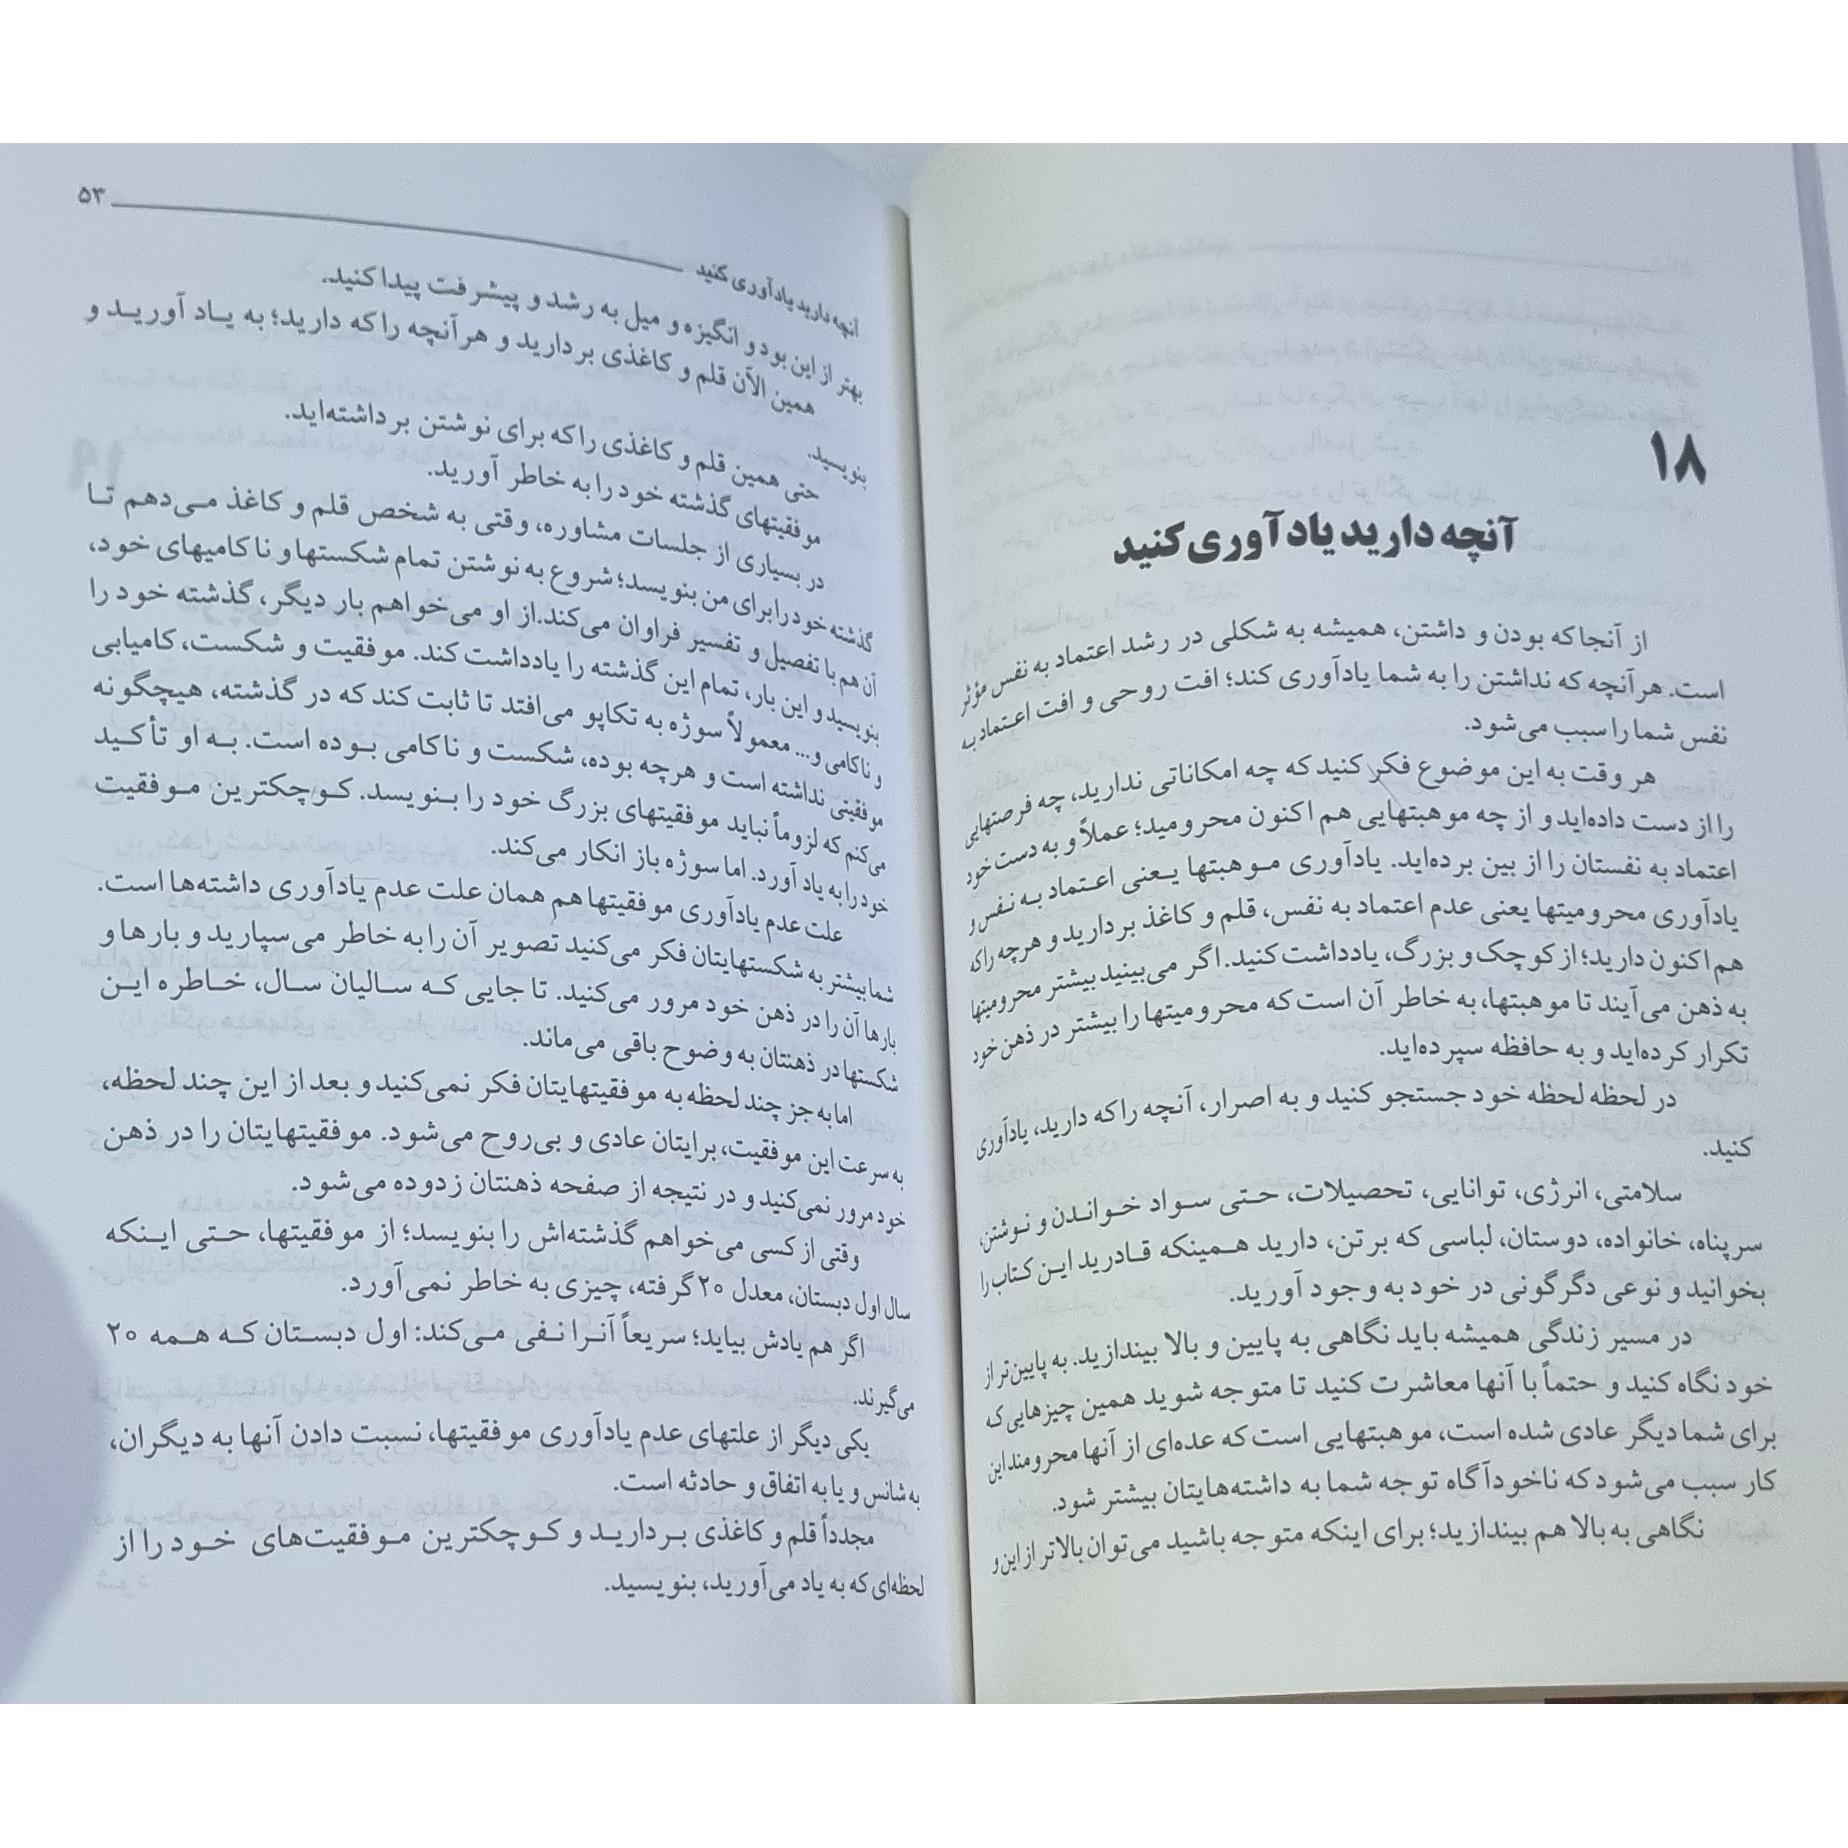 ۱۸
آنچه دارید یادآوری کنید
از آنجا که بودن و داشتن، همیشه به شکلی در رشد اعتماد به نفس مؤثر
است. هر آنچه که نداشتن را به شما یادآوری کند؛ افت روحی و افت اعتماد به
نفس شما را سبب می‌شود.
هر وقت به این موضوع فکر کنید که چه امکاناتی ندارید، چه فرصتهایی
را از دست داده‌اید و از چه موهبتهایی هم اکنون محرومید؛ عملاً و به دست خود
اعتماد به نفستان را از بین برده‌اید. یادآوری موهبتها یعنی اعتماد به نفس و
یادآوری محرومیتها یعنی عدم اعتماد به نفس، قلم و کاغذ بردارید و هرچه را که
هم اکنون دارید؛ از کوچک و بزرگ، یادداشت کنید. اگر می‌بینید بیشتر محرومیتها
به ذهن می‌آیند تا موهبتها، به خاطر آن است که محرومیتها را بیشتر در ذهن خود
تکرار کرده‌اید و به حافظه سپرده‌اید.
در لحظه لحظه خود جستجو کنید و به اصرار، آنچه را که دارید، یادآوری
کنید.
سلامتی، انرژی، توانایی، تحصیلات، حتی سواد خواندن و نوشتن،
سرپناه، خانواده، دوستان، لباسی که بر تن، دارید همینکه قادرید این کتاب را
بخوانید و نوعی دگرگونی در خود به وجود آورید.
در مسیر زندگی همیشه باید نگاهی به پایین و بالا بیندازید. به پایین‌تر از
خود نگاه کنید و حتماً با آنها معاشرت کنید تا متوجه شوید همین چیزهایی که
برای شما دیگر عادی شده است، موهبتهایی است که عده‌ای از آنها محرومند این
کار سبب می‌شود که ناخودآگاه توجه شما به داشته‌هایتان بیشتر شود.
نگاهی به بالا هم بیندازید؛ برای اینکه متوجه باشید می‌توان بالاتر از این و
آنچه دارید یادآوری کنید ۵۳
بهتر از این بود و انگیزه و میل به رشد و پیشرفت پیدا کنید.
همین الآن قلم و کاغذی بردارید و هر آنچه را که دارید؛ به یاد آورید و
بنویسید.
حتی همین قلم و کاغذی را که برای نوشتن برداشته‌اید.
موفقیتهای گذشته خود را به خاطر آورید.
در بسیاری از جلسات مشاوره، وقتی به شخص قلم و کاغذ می‌دهم تا
گذشته خود را برای من بنویسد؛ شروع به نوشتن تمام شکستها و ناکامیهای خود،
آن هم با تفصیل و تفسیر فراوان می‌کند. از او می‌خواهم بار دیگر، گذشته خود را
بنویسید و این بار، تمام این گذشته را یادداشت کند. موفقیت و شکست، کامیابی
و ناکامی و... معمولاً سوژه به تکاپو می‌افتد تا ثابت کند که در گذشته، هیچگونه
موفقیتی نداشته است و هرچه بوده، شکست و ناکامی بوده است. به او تأکید
می‌کنم که لزوماً نباید موفقیتهای بزرگ خود را بنویسد. کوچکترین موفقیت
خود را به یاد آورد. اما سوژه باز انکار می‌کند.
علت عدم یادآوری موفقیتها هم همان علت عدم یادآوری داشته‌ها است.
شما بیشتر به شکستهایتان فکر می‌کنید تصویر آن را به خاطر می‌سپارید و بارها و
بارها آن را در ذهن خود مرور می‌کنید. تا جایی که سالیان سال، خاطره این
شکستها در ذهنتان به وضوح باقی می‌ماند.
اما به جز چند لحظه به موفقیتهایتان فکر نمی‌کنید و بعد از این چند لحظه،
به سرعت این موفقیت، برایتان عادی و بی‌روح می‌شود. موفقیتهایتان را در ذهن
خود مرور نمی‌کنید و در نتیجه از صفحه ذهنتان زدوده می‌شود.
وقتی از کسی می‌خواهم گذشته‌اش را بنویسد؛ از موفقیتها، حتی اینکه
سال اول دبستان، معدل ۲۰ گرفته، چیزی به خاطر نمی‌آورد.
اگر هم یادش بیاید؛ سریعاً آنرا نفی می‌کند: اول دبستان که همه ۲۰
می‌گیرند.
یکی دیگر از علتهای عدم یادآوری موفقیتها، نسبت دادن آنها به دیگران،
به شانس و یا به اتفاق و حادثه است.
مجدداً قلم و کاغذی بردارید و کوچکترین موفقیت‌های خود را از
لحظه‌ای که به یاد می‌آورید، بنویسید.